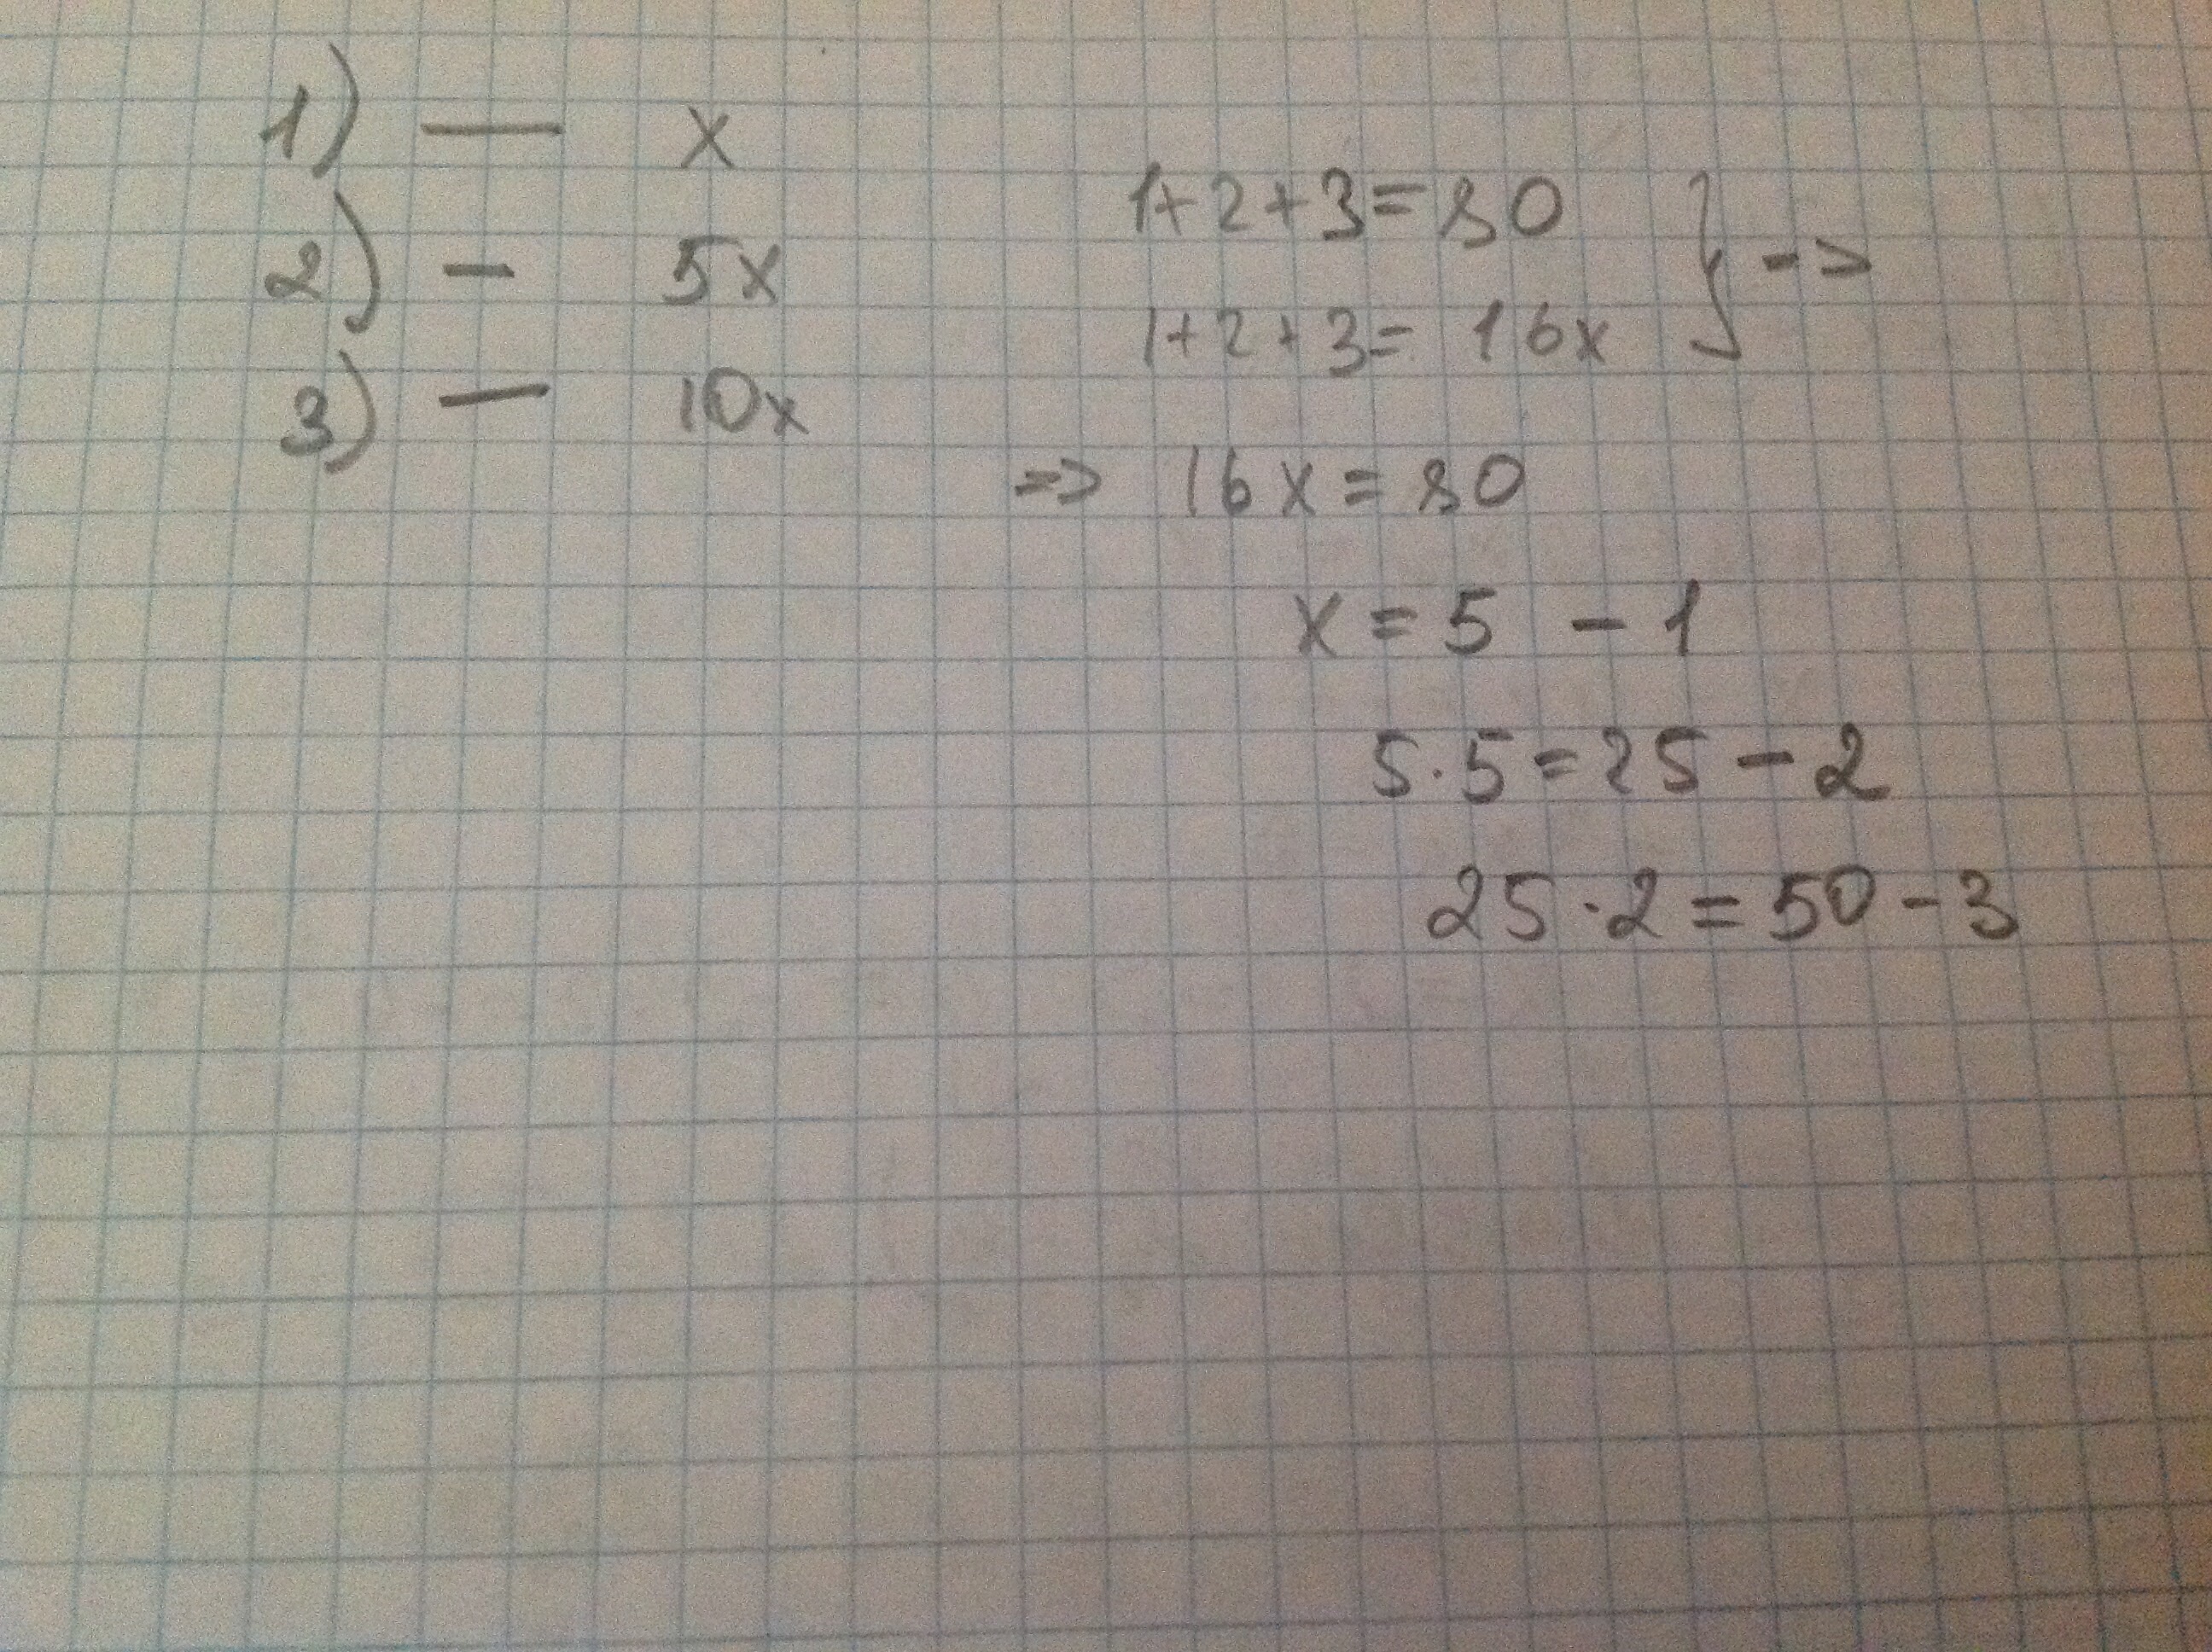 1) — x
2) - 5x
3) — 10x
1+2+3=80 } ->
1+2+3= 16x
=> 16x=80
x=5 - 1
5·5=25-2
25·2=50-3